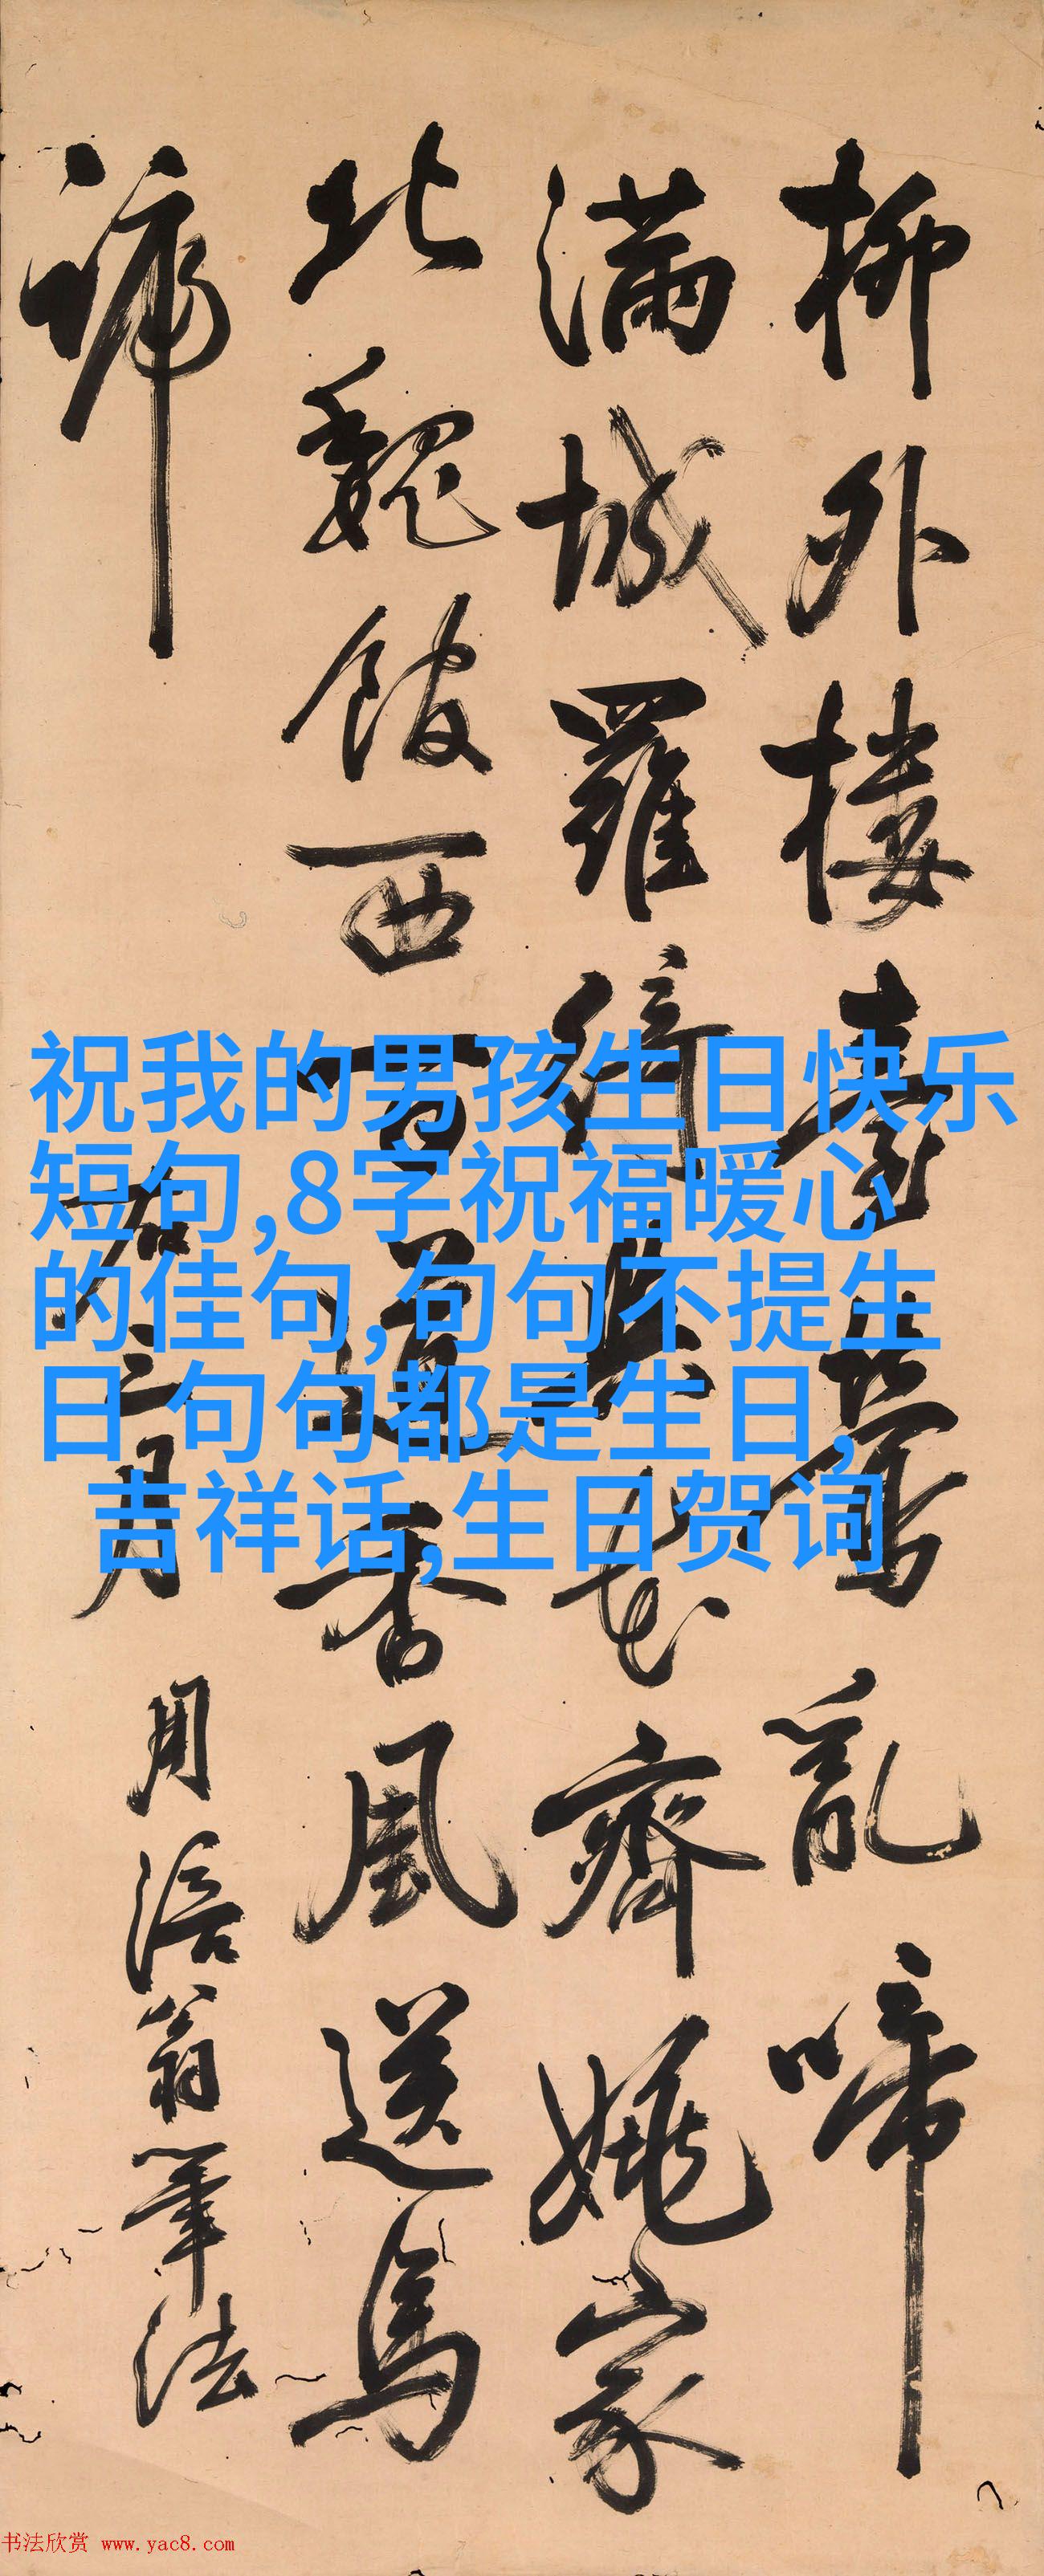 柳外樓臺鶯亂啼
滿城羅綺花齊姚家
北魏館西百道香風送馬
蹄
三月
用涪翁筆法
祝我的男孩生日快乐
短句,8字祝福暖心
的佳句,句句不提生
日 句句都是生日,
吉祥话,生日贺词
书法欣赏 www.yac8.com